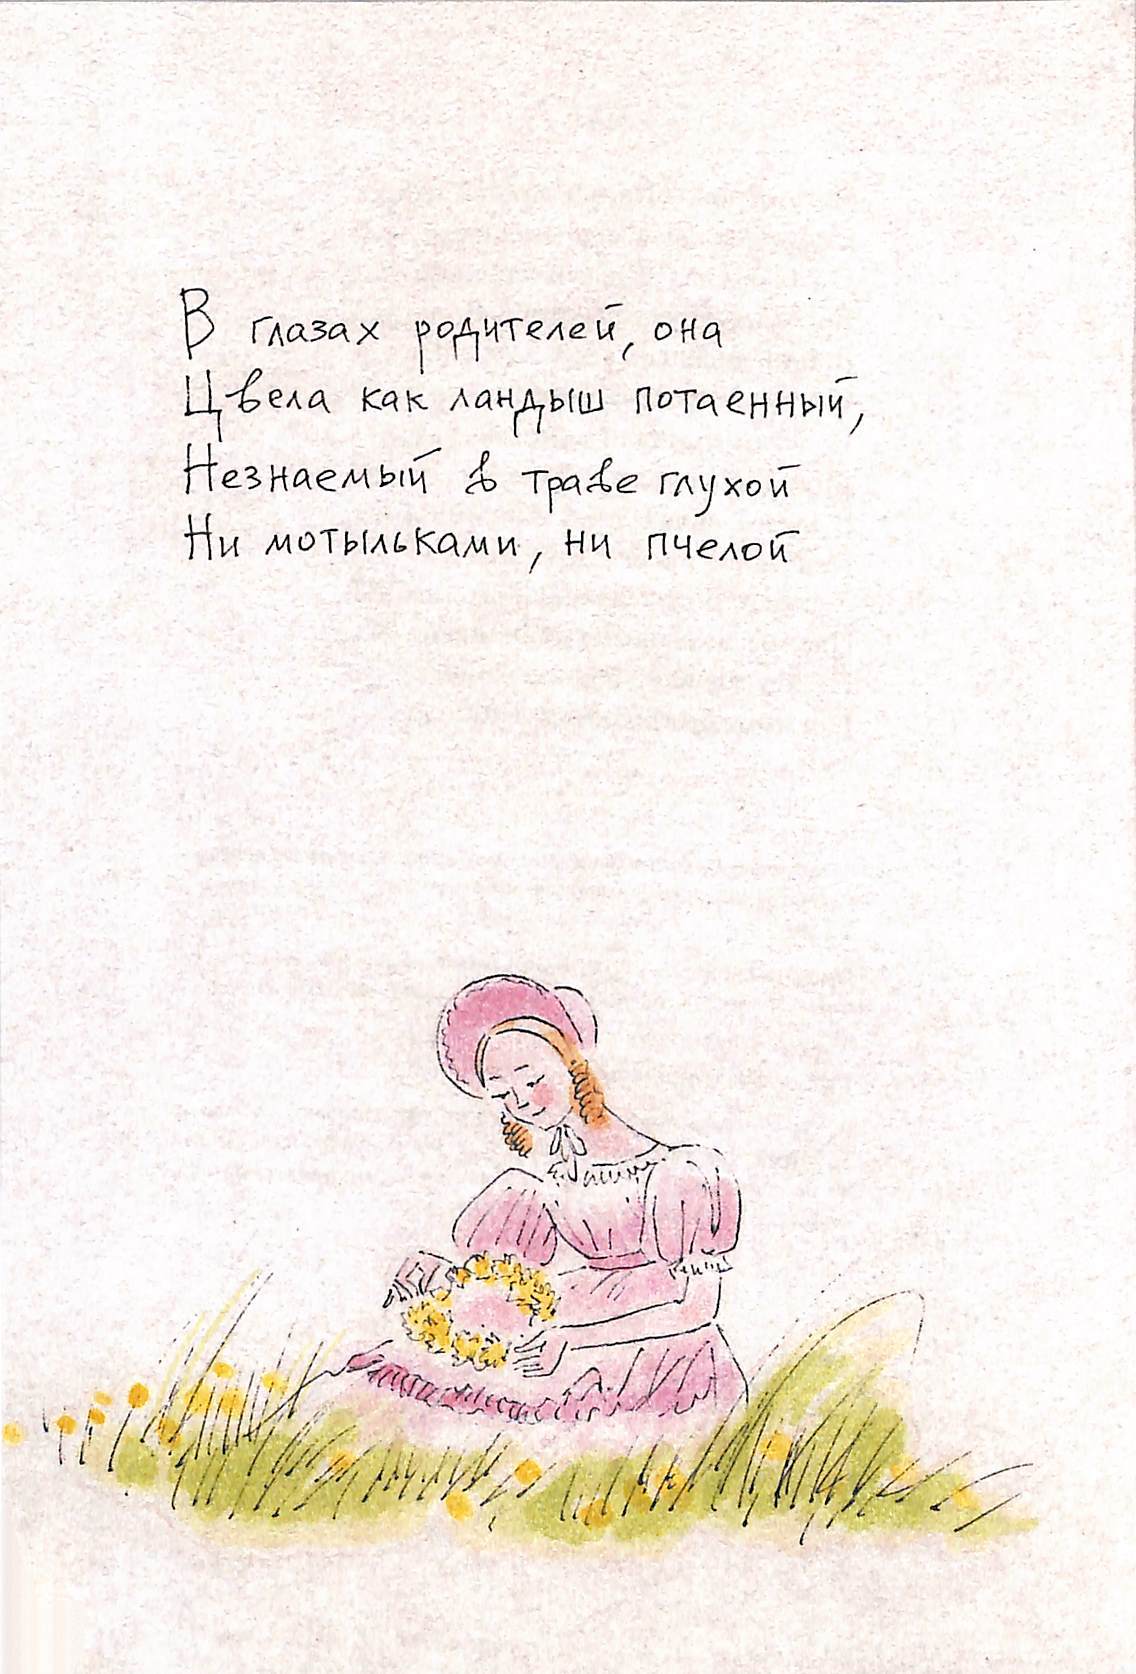 В глазах родителей, она
Цвела как ландыш потаенный,
Незнаемый в траве глухой
Ни мотыльками, ни пчелой